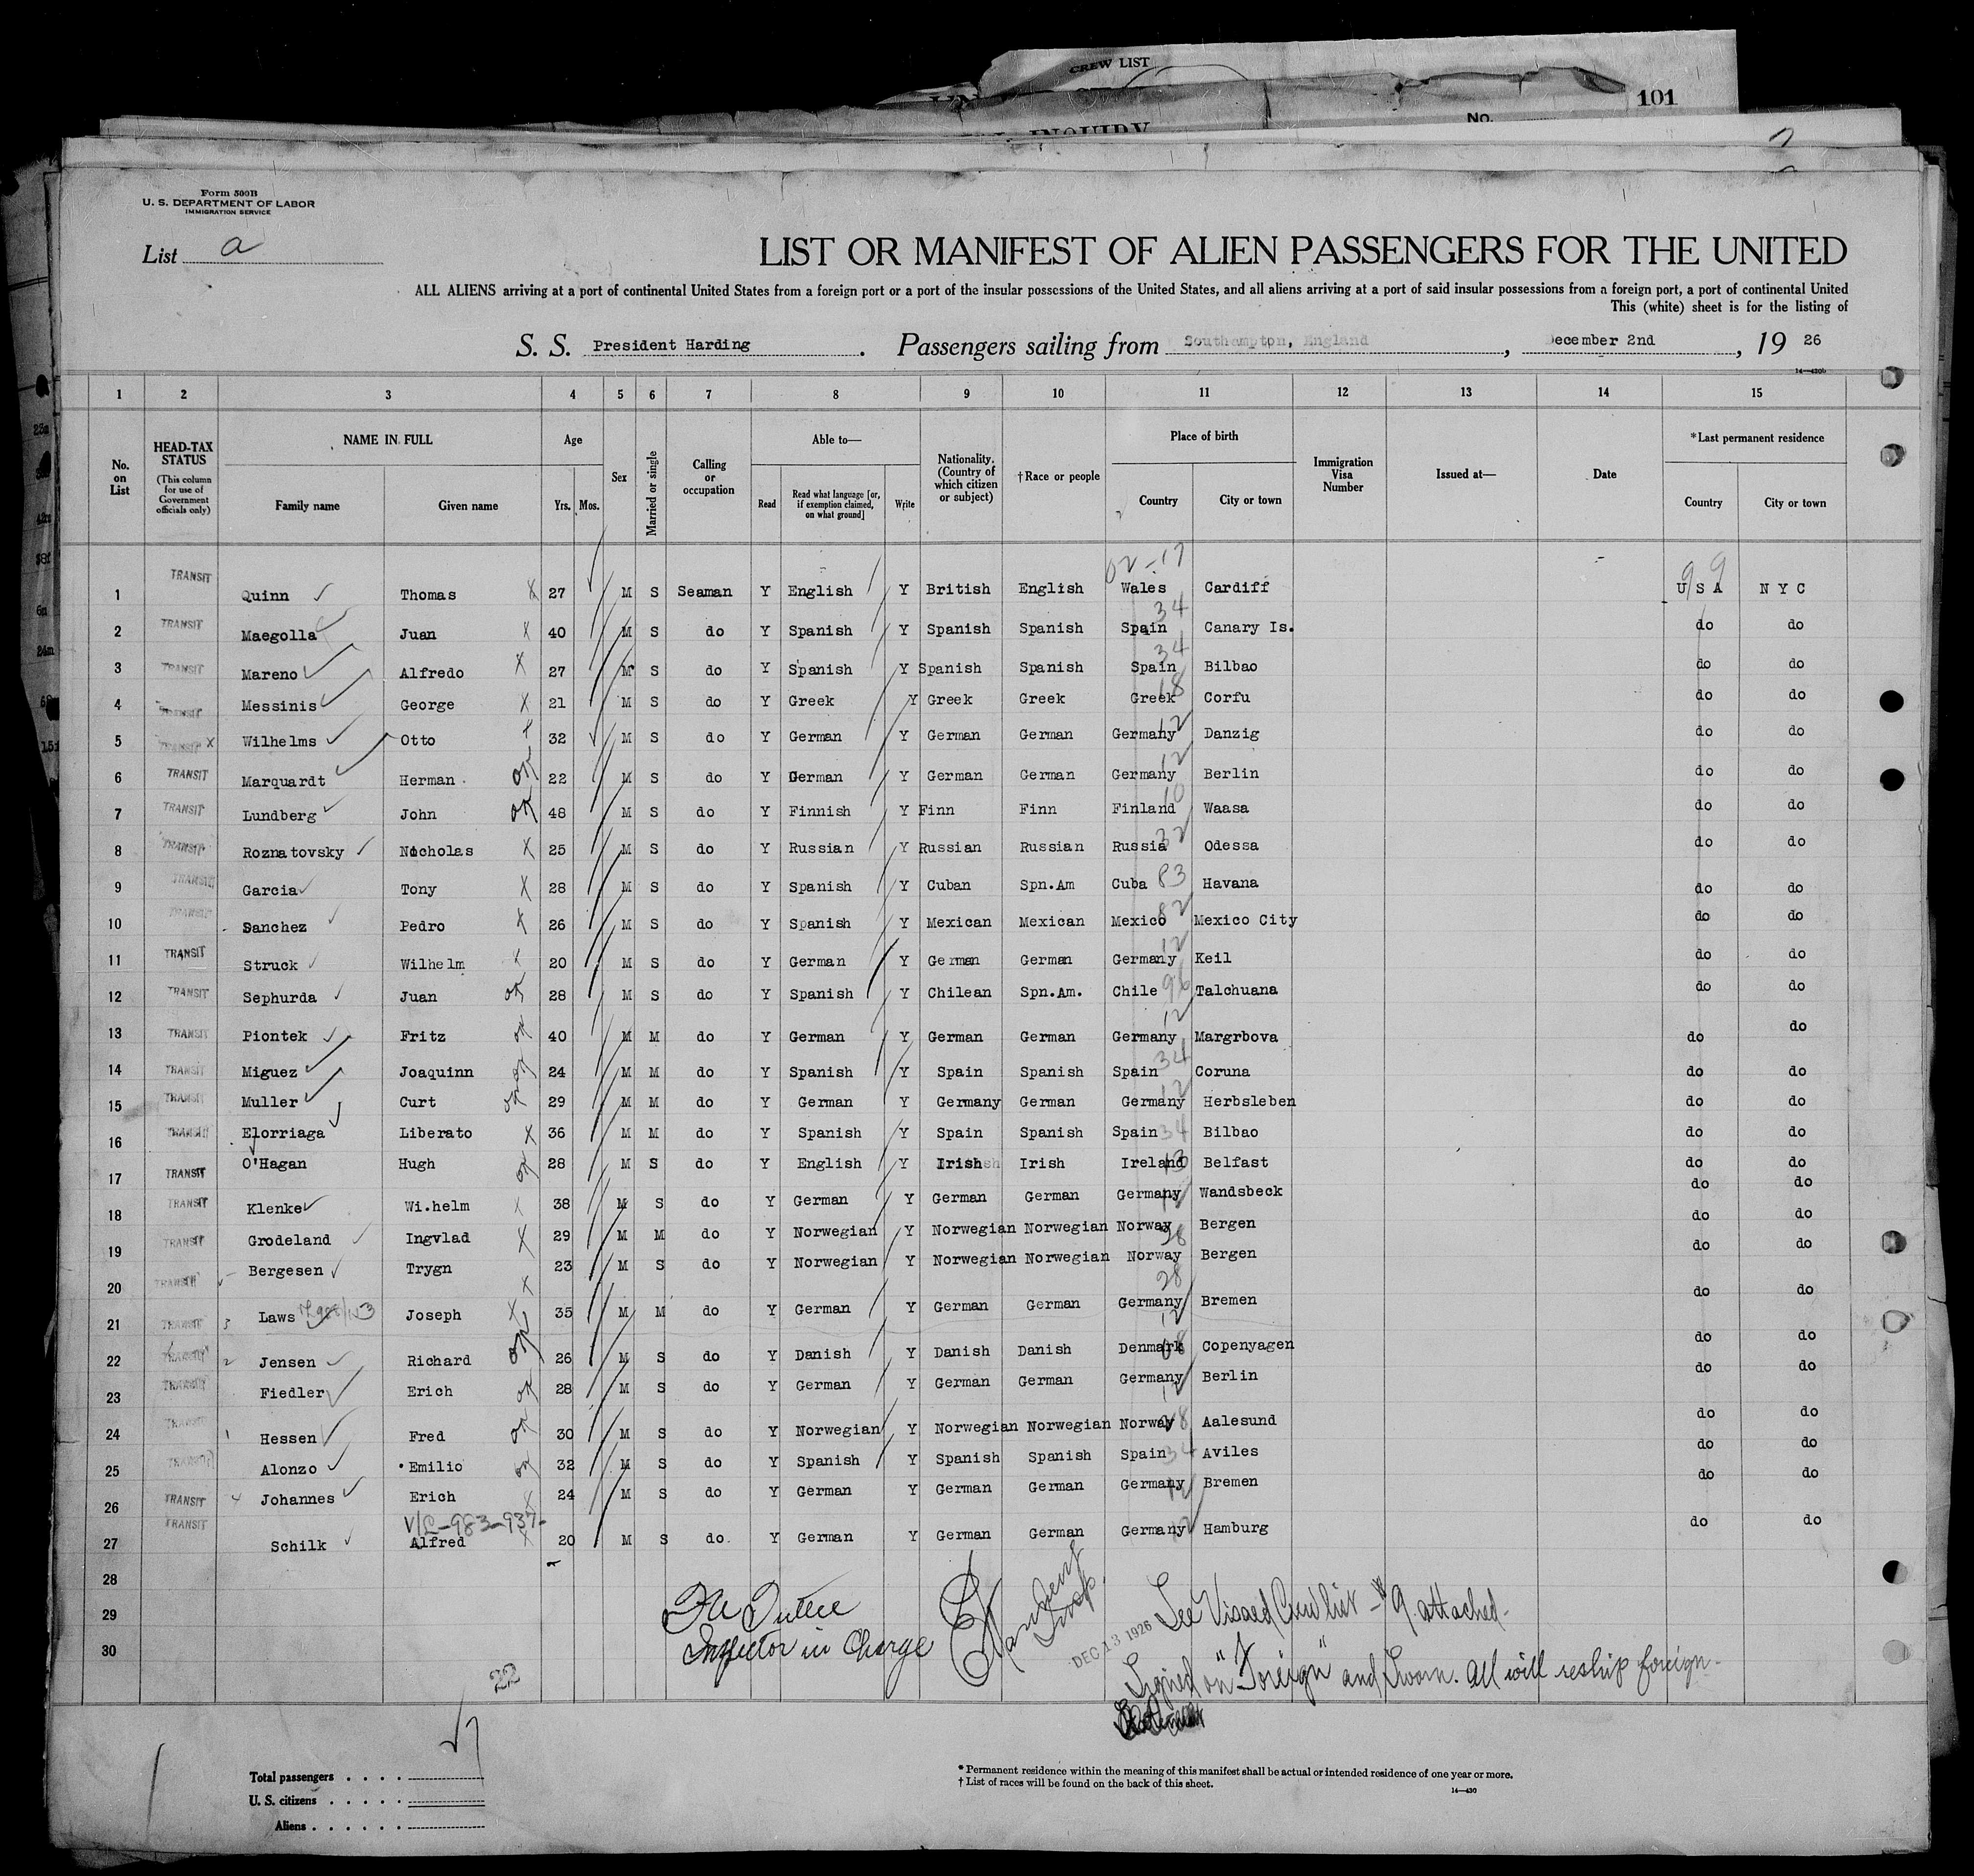 CREW LIST
101
INQUIRY
No.
Form 500B
U. S. DEPARTMENT OF LABOR
IMMIGRATION SERVICE
List a
LIST OR MANIFEST OF ALIEN PASSENGERS FOR THE UNITED
ALL ALIENS arriving at a port of continental United States from a foreign port or a port of the insular possessions of the United States, and all aliens arriving at a port of said insular possessions from a foreign port, a port of continental United
This (white) sheet is for the listing of
S. S. President Harding. Passengers sailing from Southampton, England, December 2nd, 19 26
1 2 3 4 5 6 7 8 9 10 11 12 13 14 15
No. on List
HEAD-TAX STATUS (This column for use of Government officials only)
NAME IN FULL
Family name Given name
Age
Yrs. Mos.
Sex
Married or single
Calling or occupation
Able to—
Read Read what language [or, if exemption claimed, on what ground] Write
Nationality. (Country of which citizen or subject)
†Race or people
Place of birth
Country City or town
Immigration Visa Number
Issued at—
Date
*Last permanent residence
Country City or town
02-17 99
1 TRANSIT Quinn Thomas X 27 M S Seaman Y English Y British English Wales Cardiff U S A N Y C
2 TRANSIT Maegolla Juan X 40 M S do Y Spanish Y Spanish Spanish Spain 34 Canary Is. do do
3 TRANSIT Mareno Alfredo X 27 M S do Y Spanish Y Spanish Spanish Spain 34 Bilbao do do
4 TRANSIT Messinis George X 21 M S do Y Greek Y Greek Greek Greek 18 Corfu do do
5 TRANSIT X Wilhelms Otto X 32 M S do Y German Y German German Germany 12 Danzig do do
6 TRANSIT Marquardt Herman ok 22 M S do Y German Y German German Germany 12 Berlin do do
7 TRANSIT Lundberg John ok 48 M S do Y Finnish Y Finn Finn Finland 10 Waasa do do
8 TRANSIT Roznatovsky Nocholas X 25 M S do Y Russian Y Russian Russian Russia 32 Odessa do do
9 TRANSIT Garcia Tony X 28 M S do Y Spanish Y Cuban Spn.Am Cuba 83 Havana do do
10 TRANSIT Sanchez Pedro X 26 M S do Y Spanish Y Mexican Mexican Mexico 82 Mexico City do do
11 TRANSIT Struck Wilhelm X 20 M S do Y German Y German German Germany 12 Keil do do
12 TRANSIT Sephurda Juan ok 28 M S do Y Spanish Y Chilean Spn.Am. Chile 96 Talchuana do do
13 TRANSIT Piontek Fritz ok 40 M M do Y German Y German German Germany 12 Margrbova do do
14 TRANSIT Miguez Joaquinn ok 24 M M do Y Spanish Y Spain Spanish Spain 34 Coruna do do
15 TRANSIT Muller Curt ok 29 M M do Y German Y Germany German Germany 12 Herbsleben do do
16 TRANSIT Elorriaga Liberato X 36 M M do Y Spanish Y Spain Spanish Spain 34 Bilbao do do
17 TRANSIT O'Hagan Hugh ok 28 M S do Y English Y Irish Irish Ireland 13 Belfast do do
18 TRANSIT Klenke Wi.helm X 38 M S do Y German Y German German Germany 12 Wandsbeck do do
19 TRANSIT Grodeland Ingvlad X 29 M M do Y Norwegian Y Norwegian Norwegian Norway 28 Bergen do do
20 TRANSIT Bergesen Trygn X 23 M S do Y Norwegian Y Norwegian Norwegian Norway 28 Bergen do do
21 TRANSIT 3 Laws Joseph X 35 M M do Y German Y German German Germany 12 Bremen do do
22 TRANSIT 2 Jensen Richard ok 26 M S do Y Danish Y Danish Danish Denmark 08 Copenyagen do do
23 TRANSIT Fiedler Erich ok 28 M S do Y German Y German German Germany 12 Berlin do do
24 TRANSIT 1 Hessen Fred ok 30 M S do Y Norwegian Y Norwegian Norwegian Norway 28 Aalesund do do
25 TRANSIT Alonzo Emilio ok 32 M S do Y Spanish Y Spanish Spanish Spain 34 Aviles do do
26 TRANSIT 4 Johannes Erich X 24 M S do Y German Y German German Germany 12 Bremen do do
V/L-983-937-
27 TRANSIT Schilk Alfred X 20 M S do. Y German Y German German Germany 12 Hamburg do do
28
29
30
Inspector in Charge
Insp.
DEC 13 1926
See Visaed Crew list - #9 attached.
Signed on "Foreign" and Sworn. All will reship foreign.
22
Total passengers
U. S. citizens
Aliens
* Permanent residence within the meaning of this manifest shall be actual or intended residence of one year or more.
† List of races will be found on the back of this sheet.
14—430